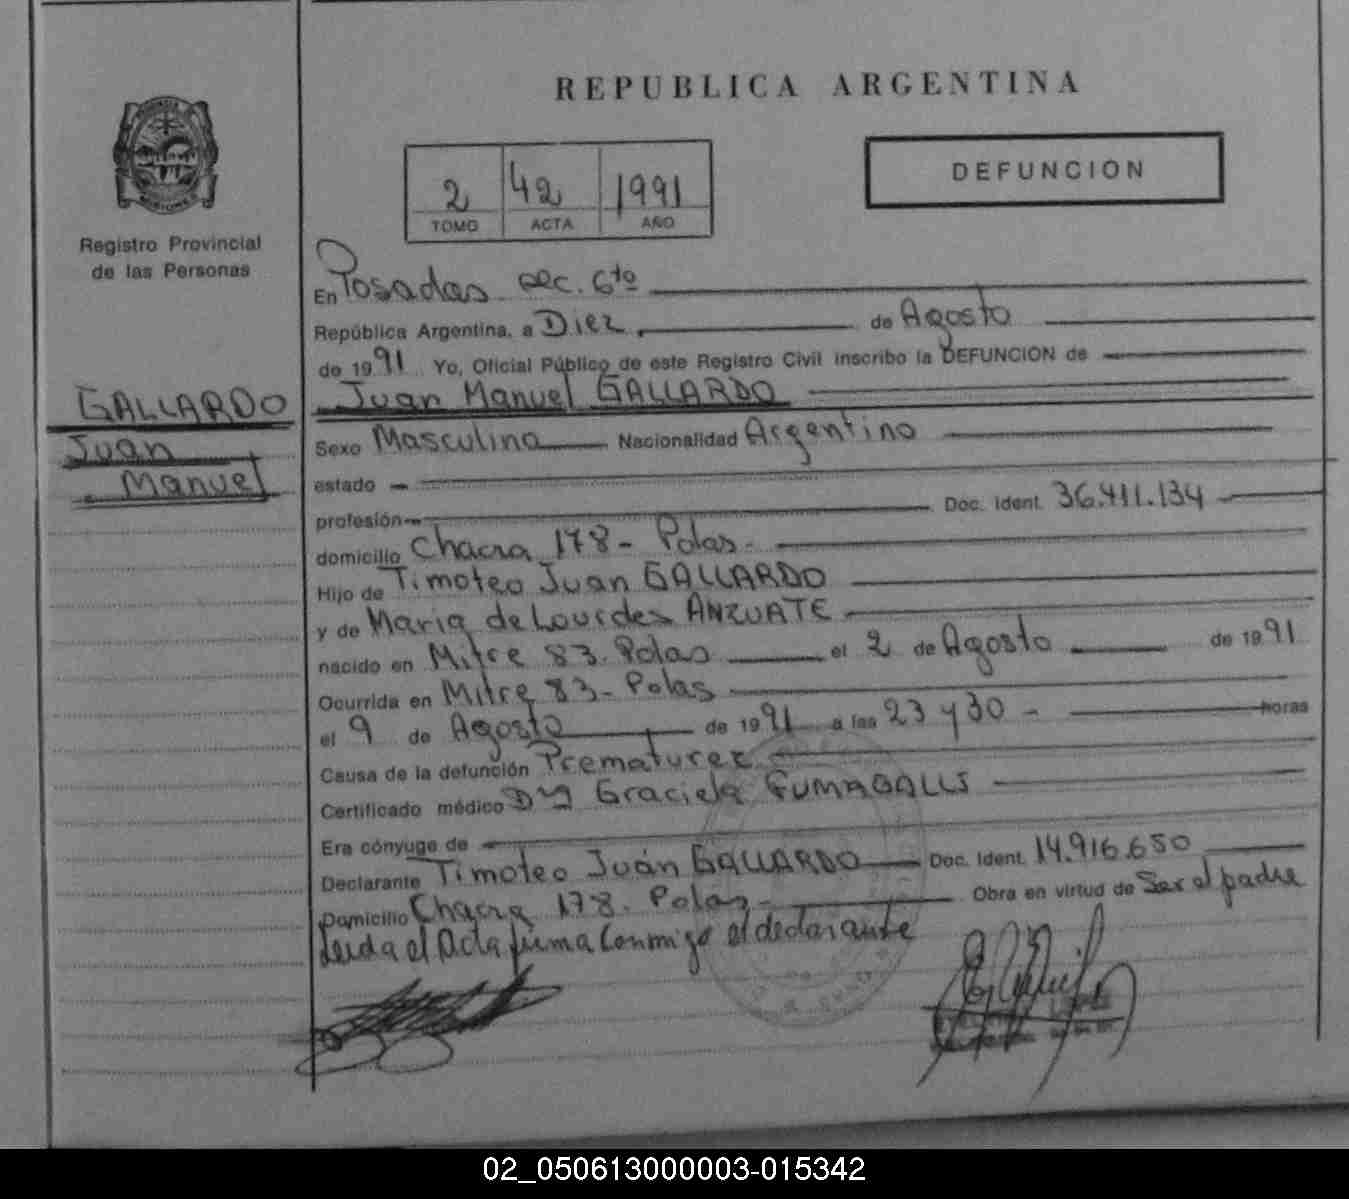 REPUBLICA ARGENTINA
DEFUNCION
2 42 1991
TOMO ACTA AÑO
Registro Provincial
de las Personas
GALLARDO
Juan
Manuel
En Posadas sec. 6ta
República Argentina, a Diez de Agosto
de 1991 Yo, Oficial Público de este Registro Civil inscribo la DEFUNCION de
Juan Manuel GALLARDO
Sexo Masculino Nacionalidad Argentino
estado
profesión Doc. Ident. 36.411.134
domicilio Chacra 178 - Pdas.
Hijo de Timoteo Juan GALLARDO
y de Maria de Lourdes ANZUATE
nacido en Mitre 83. Pdas el 2 de Agosto de 1991
Ocurrida en Mitre 83 - Pdas
el 9 de Agosto de 1991 a las 23 y 30 - horas
Causa de la defunción Prematurez
Certificado médico Dra Graciela FUMAGALLI
Era cónyuge de
Declarante Timoteo Juán GALLARDO Doc. Ident. 14.916.650
Domicilio Chacra 178. Pdas - Obra en virtud de Ser el padre
Leida el Acta firma Conmigo el declarante
02_050613000003-015342